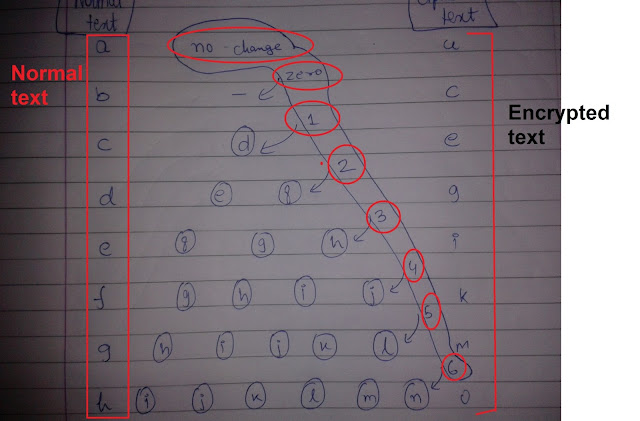 Normal
text text
a no - change a
Normal
text
zero
b – c
1
Encrypted
text
c d e
2
d e f g
3
e f g h i
4
f g h i j k
5
g h i j k l m
6
h i j k l m n o